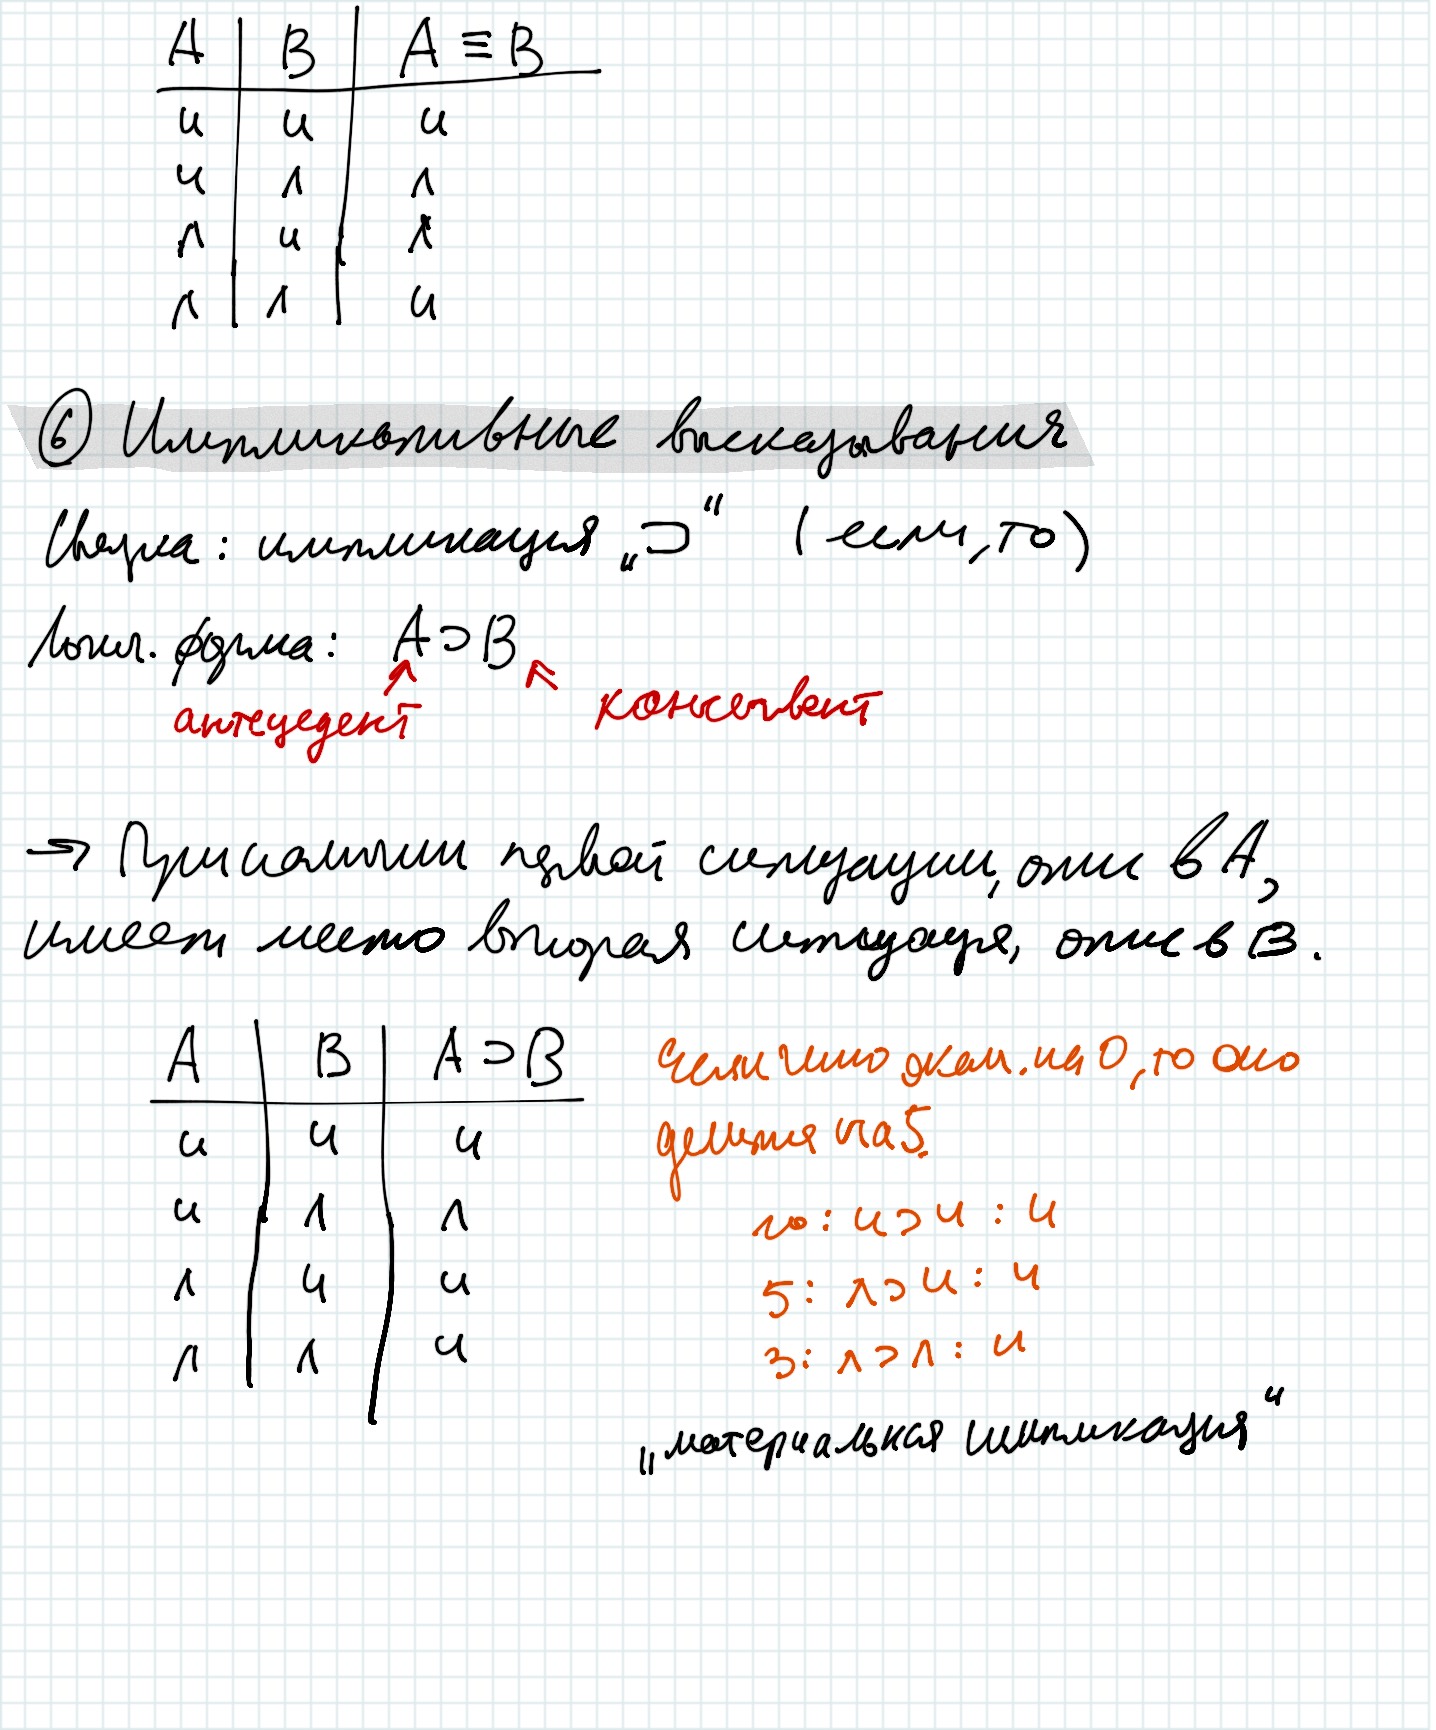 A | B | A ≡ B
и | и | и
и | л | л
л | и | л
л | л | и
⑥ Импликативные высказывания
Связка: импликация „⊃“ (если, то)
Логич. форма: A ⊃ B
антецедент консеквент
→ При наличии первой ситуации, опис в A,
имеет место вторая ситуация, опис в B.
A | B | A ⊃ B
и | и | и
и | л | л
л | и | и
л | л | и
Если число окан. на 0, то оно
делится на 5.
10: и ⊃ и : и
5: л ⊃ и : и
3: л ⊃ л : и
„материальная импликация“